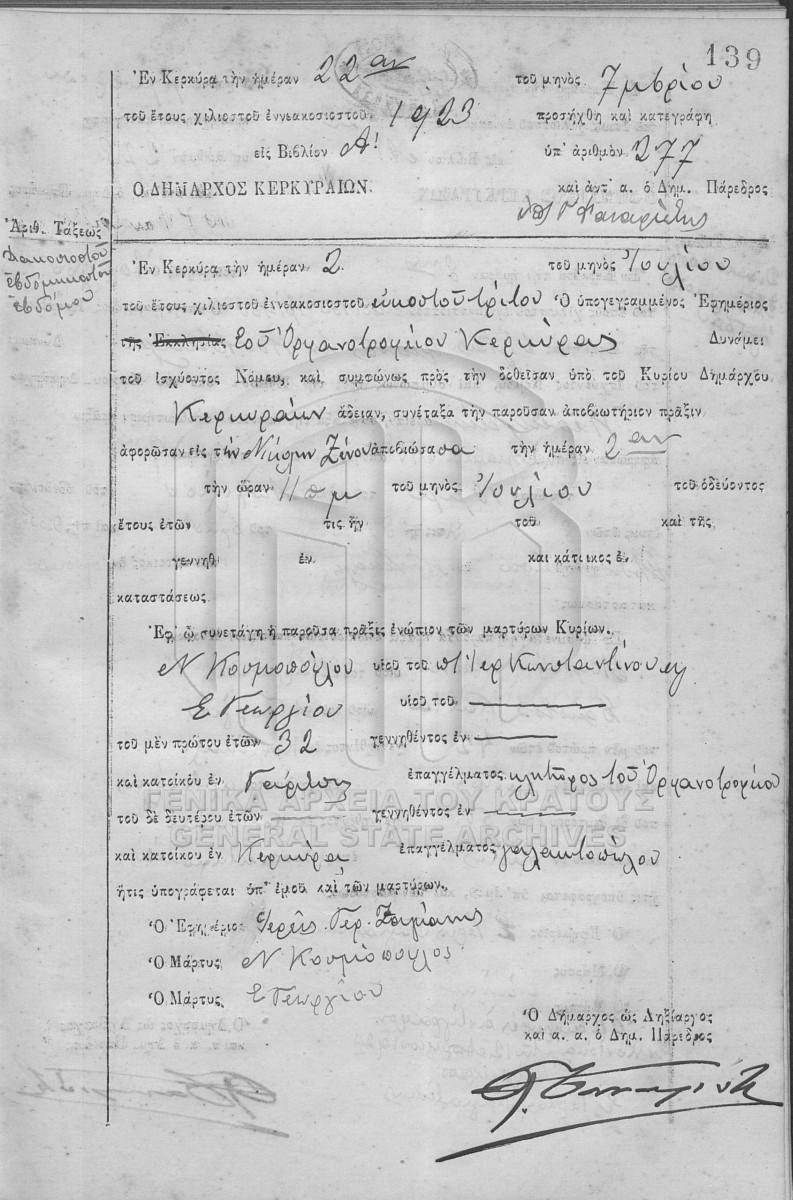 139
Ἐν Κερκύρᾳ τὴν ἡμέραν 22αν τοῦ μηνὸς 7μβρίου
τοῦ ἔτους χιλιοστοῦ ἐννεακοσιοστοῦ 1923 προσήχθη καὶ κατεγράφη
εἰς Βιβλίον Α! ὑπ' ἀριθμὸν 277
Ο ΔΗΜΑΡΧΟΣ ΚΕΡΚΥΡΑΙΩΝ. καὶ ἀντ' α. ὁ Δημ. Πάρεδρος
Ἀριθ. Τάξεως
Διακοσιοστοῦ
ἑβδομηκοστοῦ
ἑβδόμου
Ἐν Κερκύρᾳ τὴν ἡμέραν 2. τοῦ μηνὸς Ἰουλίου
τοῦ ἔτους χιλιοστοῦ ἐννεακοσιοστοῦ εἰκοστοῦ τρίτου Ὁ ὑπογεγραμμένος Ἐφημέριος
τῆς Ἐκκλησίας τοῦ Ὀρφανοτροφείου Κερκύρας Δυνάμει
τοῦ ἰσχύοντος Νόμου, καὶ συμφώνως πρὸς τὴν δοθεῖσαν ὑπὸ τοῦ Κυρίου Δημάρχου
Κερκυραίων ἄδειαν, συνέταξα τὴν παροῦσαν ἀποβιωτήριον πρᾶξιν
ἀφορῶσαν εἰς τὴν Ξένου ἀποβιώσασα τὴν ἡμέραν 2αν
τὴν ὥραν 11 π μ τοῦ μηνὸς Ἰουλίου τοῦ ὁδεύοντος
ἔτους ἐτῶν τις ἦν τοῦ καὶ τῆς
γεννηθ ἐν και κάτοικος ἐν
καταστάσεως
Ἐφ' ᾧ συνετάγη ἡ παροῦσα πρᾶξις ἐνώπιον τῶν μαρτύρων Κυρίων.
Ν Κουμοπούλου υἱοῦ τοῦ Κωνσταντίνου
Ε Γεωργίου υἱοῦ τοῦ
τοῦ μὲν πρώτου ἐτῶν 32 γεννηθέντος ἐν
καὶ κατοίκου ἐν Γαρίτσῃ ἐπαγγέλματος κλητῆρος τοῦ Ὀρφανοτροφείου
ΓΕΝΙΚΑ ΑΡΧΕΙΑ ΤΟΥ ΚΡΑΤΟΥΣ
τοῦ δὲ δευτέρου ἐτῶν γεννηθέντος ἐν
GENERAL STATE ARCHIVES
καὶ κατοίκου ἐν Κερκύρᾳ ἐπαγγέλματος γαλακτοπώλου
ἥτις ὑπογράφεται ὑπ' ἐμοῦ καὶ τῶν μαρτύρων.
Ὁ Ἐφημέριος Ἱερεὺς Γερ.
Ὁ Μάρτυς Ν Κουμόπουλος
Ὁ Μάρτυς Ε Γεωργίου
Ὁ Δήμαρχος ὡς Ληξίαρχος
καὶ α. α. ὁ Δημ. Πάρεδρος